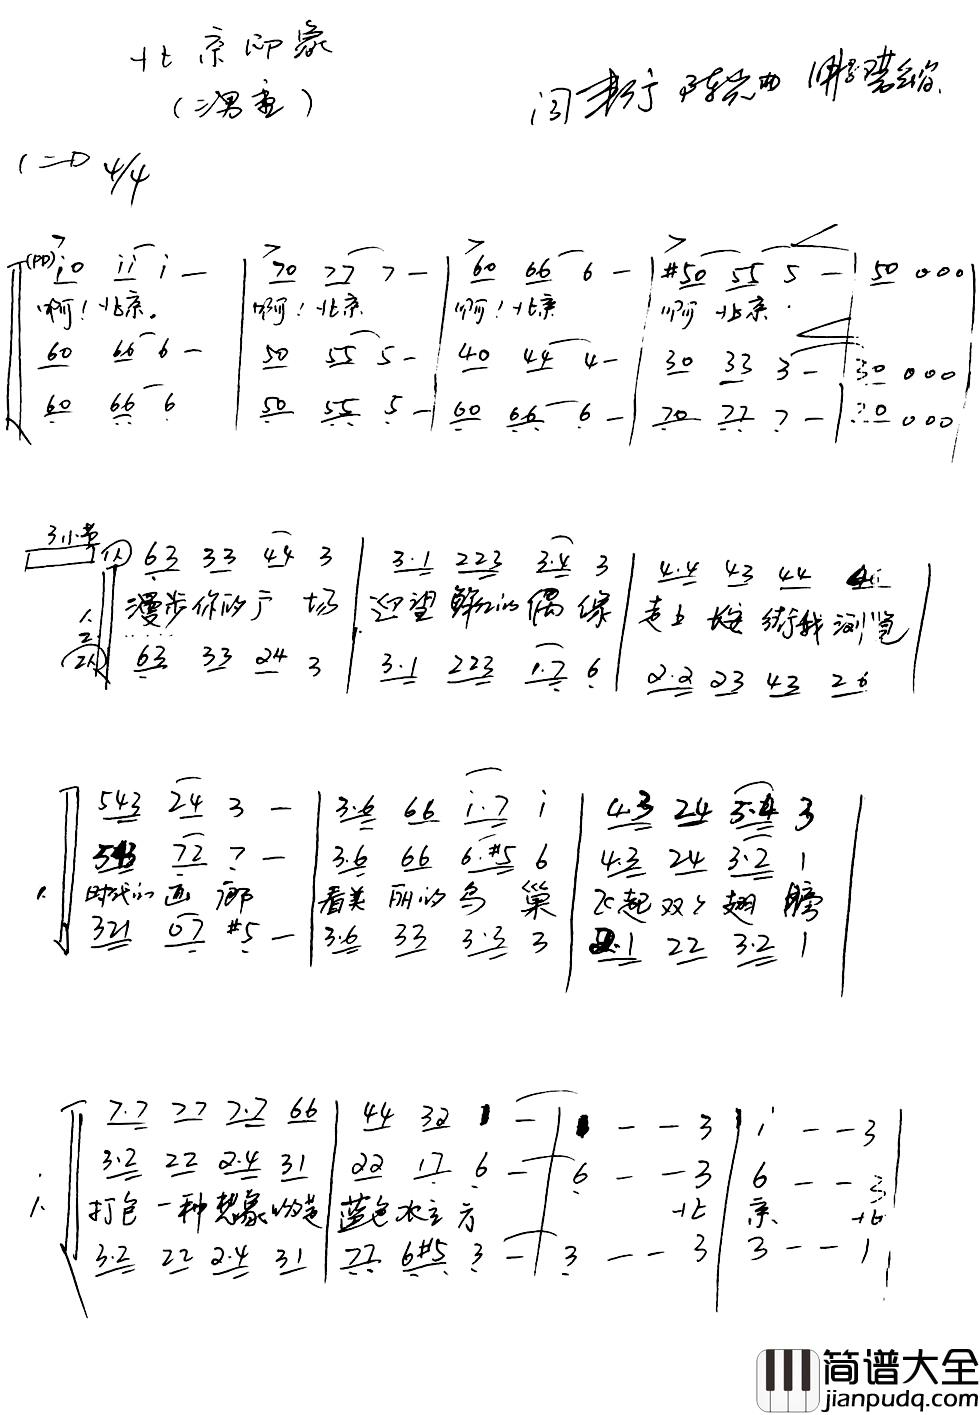 北京印象
(男重)
1=D 4/4
(PP) i0 ii i - | 70 77 7 - | 60 66 6 - | #50 55 5 - | 50 000
啊！北京。 啊！北京 啊！北京 啊 北京
60 66 6 - 50 55 5 - 40 44 4 - 30 33 3 - 30 000
60 66 6 50 55 5 - 60 66 6 - 70 77 7 - 000
3小节 63 33 44 3 | 3·1 223 3·4 3 | 4·4 43 44
漫步你的广场 望 的偶像 走上长安街我浏览
63 33 24 3 3·1 223 1·7 6 2·2 23 43 26
543 24 3 - | 3·6 66 i·7 i | 4·3 24 5·4 3
543 72 7 - 3·6 66 6·#5 6 4·3 24 3·2 1
时代的画廊 看美丽的鸟巢 飞起双 翅膀
321 07 #5 - 3·6 33 3·3 3 2·1 22 3·2 1
7·7 77 7·7 66 | 44 32 1 - | 1 - - 3 | i - - 3
3·2 22 2·4 31 22 17 6 - 6 - - 3 6 - - 3
打包一种想象的 蓝色水立方 北 京 北
3·2 22 2·4 31 77 6#5 3 - 3 - - 3 3 - - 1
简谱大全
jianpudq.com